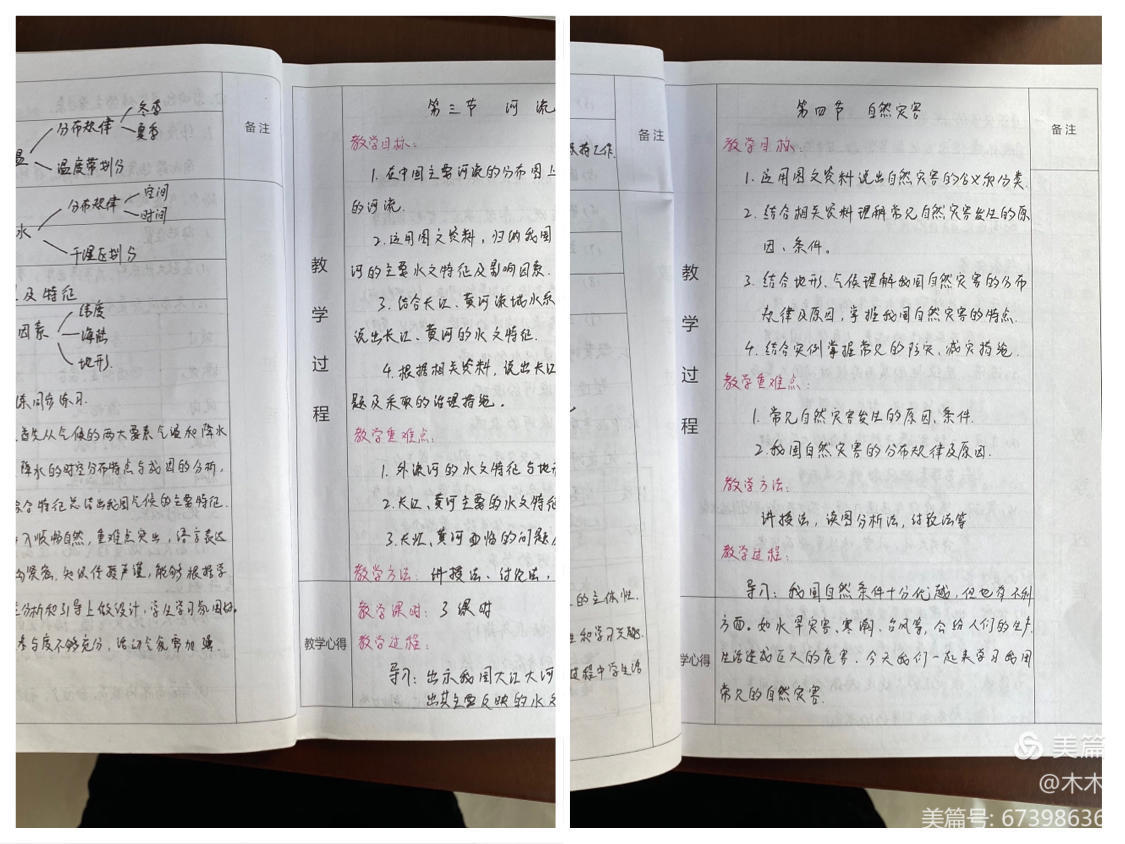 冬季
分布规律
夏季
温
温度带划分
空间
分布规律
时间
水
干湿区划分
及特征
纬度
因素
海陆
地形
练同步练习.
首先从气候的两大要素气温和降水
降水的时空分布特点与成因的分析,
合特征总结出我国气候的主要特征.
入顺畅自然,重难点突出,语言表达
知识传授严谨,能够根据学
分析和引导上做设计,学生学习氛围
参与度不够充分,活动气氛需加强.
备注
教学过程
教学心得
第三节 河流
教学目标:
1. 在中国主要河流的分布图上
的河流.
2. 运用图文资料,归纳我国
河的主要水文特征及影响因素.
3. 结合长江、黄河流域水系
说出长江、黄河的水文特征.
4. 根据相关资料,说出长江
题及采取的治理措施.
教学重难点:
1. 外流河的水文特征与地形
2. 长江、黄河主要的水文特征
3. 长江、黄河面临的问题及
教学方法: 讲授法、讨论法,
教学课时: 3课时
教学过程:
导入: 出示我国大江大河
出其主要反映的水文
备注
工作.
的主体性.
和学习兴趣.
过程中学生活
教学过程
学心得
第四节 自然灾害
教学目标:
1. 运用图文资料说出自然灾害的含义和分类.
2. 结合相关资料理解常见自然灾害发生的原
因、条件。
3. 结合地形、气候理解我国自然灾害的分布
规律及原因,掌握我国自然灾害的特点.
4. 结合实例掌握常见的防灾、减灾措施.
教学重难点:
1. 常见自然灾害发生的原因、条件.
2. 我国自然灾害的分布规律及原因.
教学方法:
讲授法,读图分析法,讨论法等
教学过程:
导入: 我国自然条件十分优越,但也有不利
方面。如水旱灾害、寒潮、台风等,会给人们的生产
生活造成巨大的危害. 今天我们一起来学习我国
常见的自然灾害.
备注
美篇
@木木
美篇号: 67398636